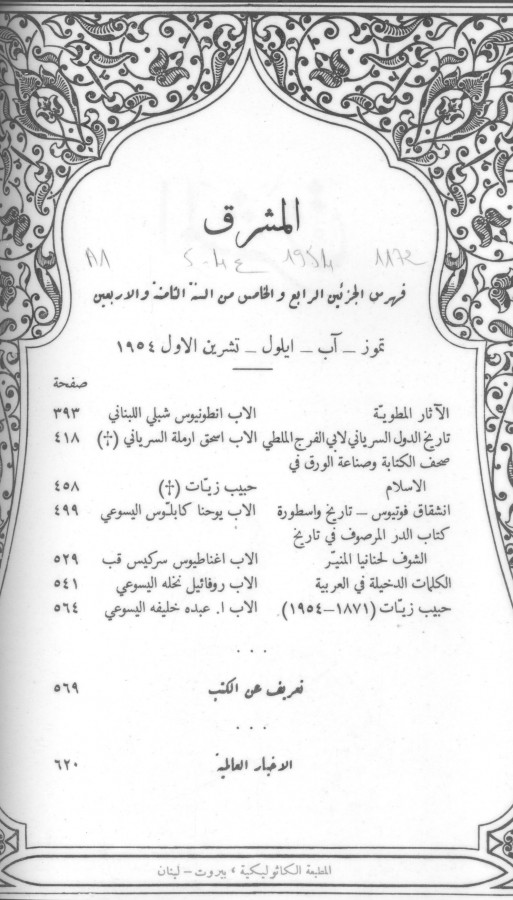 المشرق
١٩٥٤
فهرس الجزئين الرابع والخامس من السنة الثامنة والاربعين
تموز – آب – ايلول – تشرين الاول ١٩٥٤
صفحة
الآثار المطويّة الاب انطونيوس شبلي اللبناني ٣٩٣
تاريخ الدول السرياني لابي الفرج الملطي الاب اسحق ارملة السرياني (✝) ٤١٨
صحف الكتابة وصناعة الورق في
الاسلام حبيب زيّات (✝) ٤٥٨
انشقاق فوتيوس – تاريخ واسطورة الاب يوحنا كابلوس اليسوعي ٤٩٩
كتاب الدر المرصوف في تاريخ
الشوف لحنانيا المنيّر الاب اغناطيوس سركيس قب ٥٢٩
الكلمات الدخيلة في العربية الاب روفائيل نخله اليسوعي ٥٤١
حبيب زيّات (١٨٧١–١٩٥٤) الاب ا. عبده خليفه اليسوعي ٥٦٤
. . .
تعريف عن الكتب ٥٦٩
. . .
الاخبار العالمية ٦٢٠
المطبعة الكاثوليكية ، بيروت – لبنان